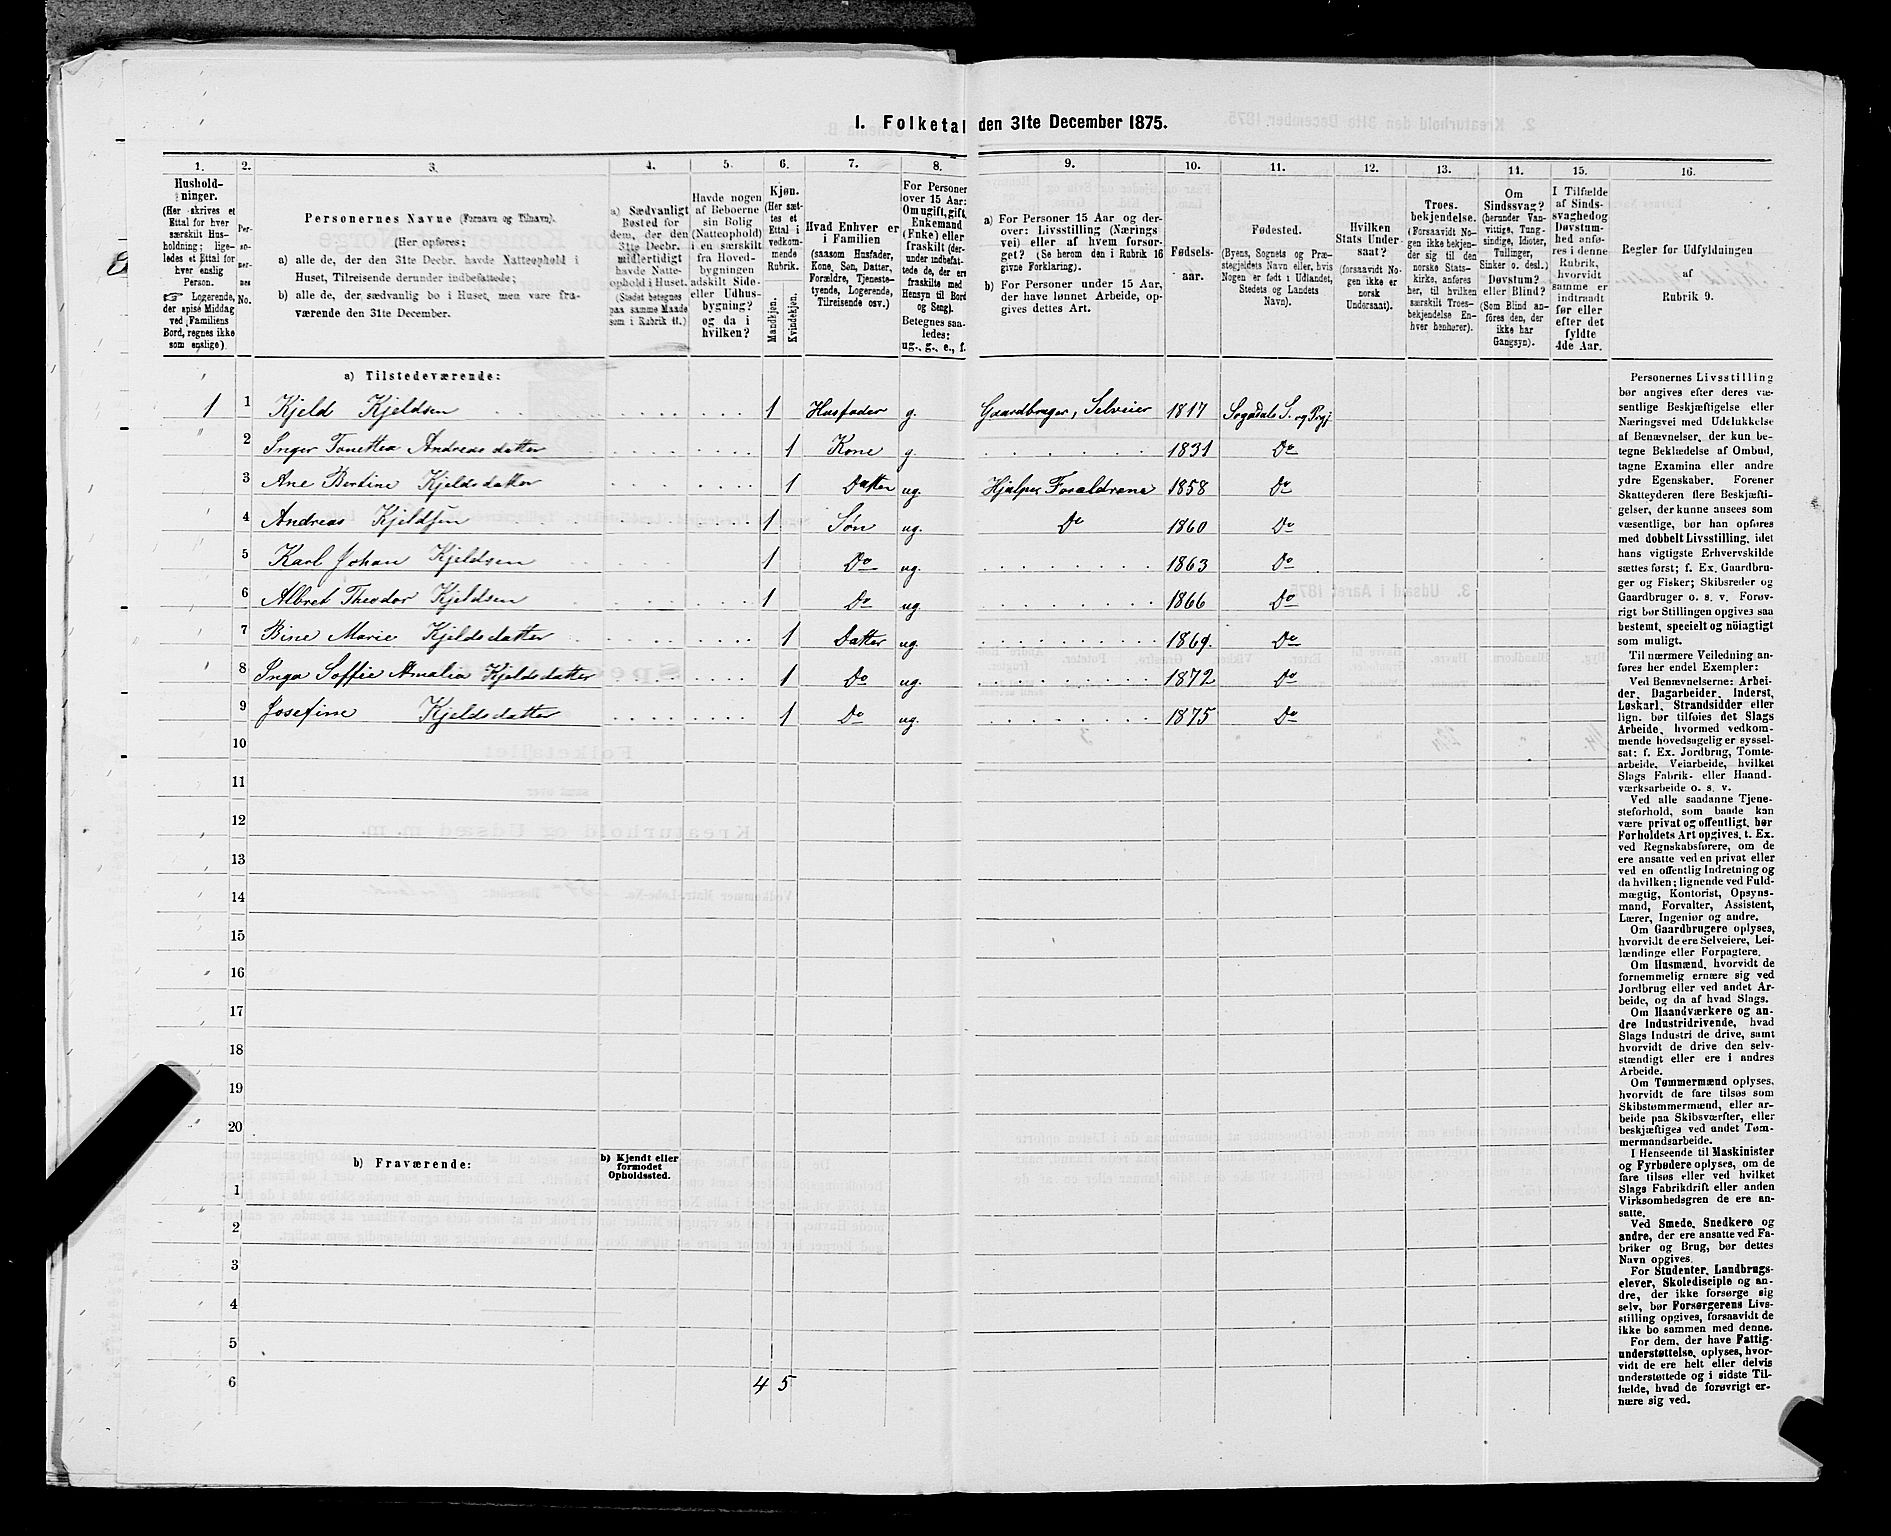 I. Folketal den 31te December 1875.
1. 2. 3. 4. 5. 6. 7. 8. 9. 10. 11. 12. 13. 11. 15. 16.
Hushold-
ninger.
(Her skrives et
Ettal for hver
særskilt Hus-
holdning; lige-
ledes et Ettal for
hver enslig
Person.
☞ Logerende,
der spise Middag
ved Familiens
Bord, regnes ikke
som enslige).
Per-
so-
ner-
nes
No.
Personernes Navne (Fornavn og Tilnavn).
(Her opføres:
a) alle de, der den 31te Decbr. havde Natteophold i
Huset, Tilreisende derunder indbefattede;
b) alle de, der sædvanlig bo i Huset, men vare fra-
værende den 31te December.
a) Sædvanligt
Bosted for
dem, der den
31te Decbr.
midlertidigt
havde Natte-
ophold i Huset.
(Stedet betegnes
paa samme Maade
som i Rubrik 11.)
Havde nogen
af Beboerne
sin Bolig
(Natteophold)
i en særskilt
fra Hoved-
bygningen
adskilt Side-
eller Udhus-
bygning?
og da i
hvilken?
Kjøn.
(Her sæt-
tes et
Ettal i
vedkom-
mende
Rubrik.
Mandkjøn.
Kvindekjøn.
Hvad Enhver er
i Familien
(saasom Husfader,
Kone, Søn, Datter,
Forældre, Tjeneste-
tyende, Logerende,
Tilreisende osv.)
For Personer
over 15 Aar:
Om ugift, gift,
Enkemand
(Enke) eller
fraskilt (der-
under indbefat-
tede de, der ere
fraskilte med
Hensyn til Bord
og Seng).
Betegnes saa-
ledes:
ug., g., e., f.
a) For Personer 15 Aar og der-
over: Livsstilling (Nærings
vei) eller af hvem forsør-
get? (Se herom den i Rubrik 16
givne Forklaring).
b) For Personer under 15 Aar,
der have lønnet Arbeide, op-
gives dettes Art.
Fødsels-
aar.
Fødested.
(Byens, Sognets og Præ-
stegjeldets Navn eller, hvis
Nogen er født i Udlandet,
Stedets og Landets
Navn).
Hvilken
Stats Under-
saat?
(forsaavidt No-
gen ikke er
norsk
Undersaat).
Troes-
bekjendelse.
(Forsaavidt No-
gen ikke bekjen-
der sig til den
norske Stats-
kirke, anføres
her, til hvilken
særskilt Troes-
bekjendelse En-
hver henhører).
Om
Sindssvag?
(herunder Van-
vittige, Tung-
sindige, Idioter,
Tullinger,
Sinker o. desl.)
Døvstum?
eller Blind?
(Som Blind an-
føres den, der
ikke har
Gangsyn).
I Tilfælde
af Sinds-
svaghed og
Døvstum-
hed anfø-
res i denne
Rubrik,
hvorvidt
samme er
indtraadt
før eller
efter det
fyldte
4de Aar.
Regler for Udfyldningen
af
Rubrik 9.
a) Tilstedeværende:
1 1 Kjeld Kjeldsen 1 Husfader g. Gaardbruger, Selveier 1817 Sogndals S. og Prgj.
2 Inger Tonettea Andreasdatter 1 Kone g. 1831 Do
3 Ane Bertine Kjeldsdatter 1 Datter ug. Hjælper Forældrene 1858 Do
4 Andreas Kjeldsen 1 Søn ug. Do 1860 Do
5 Karl Johan Kjeldsen 1 Do ug. 1863 Do
6 Albret Theodor Kjeldsen 1 Do ug. 1866 Do
7 Bine Marie Kjeldsdatter 1 Datter ug. 1869. Do
8 Inga Soffie Amalia Kjeldsdatter 1 Do ug. 1872 Do
9 Josefine Kjeldsdatter 1 Do ug. 1875 Do
10
11
12
13
14
15
16
17
18
19
20
b) Fraværende:
b) Kjendt eller
formodet
Opholdssted.
1
2
3
4
5
6 4 5
Personernes Livsstilling
bør angives efter deres væ-
sentlige Beskjæftigelse eller
Næringsvei med Udelukkelse
af Benævnelser, der kun be-
tegne Beklædelse af Ombud,
tagne Examina eller andre
ydre Egenskaber. Forener
Skatteyderen flere Beskjæfti-
gelser, der kunne ansees som
væsentlige, bør han opføres
med dobbelt Livsstilling, idet
hans vigtigste Erhvervskilde
sættes først; f. Ex. Gaardbru-
ger og Fisker; Skibsreder og
Gaardbruger o. s. v. Forøv-
rigt bør Stillingen opgives saa
bestemt, specielt og nöiagtigt
som muligt.
Til nærmere Veiledning an-
føres her endel Exempler:
Ved Benævnelserne: Arbei-
der, Dagarbeider, Inderst,
Løskarl, Strandsidder eller
lign. bør tilføies det Slags
Arbeide, hvormed vedkom-
mende hovedsagelig er syssel-
sat; f. Ex. Jordbrug, Tomte-
arbeide, Veiarbeide, hvilket
Slags Fabrik- eller Haand-
værksarbeide o. s. v.
Ved alle saadanne Tjene-
steforhold, som baade kan
være privat og offentligt, bør
Forholdets Art opgives, t. Ex.
ved Regnskabsførere, om de
ere ansatte ved en privat eller
ved en offentlig Indretning og
da hvilken; lignende ved Fuld-
mægtig, Kontorist, Opsyns-
mand, Forvalter, Assistent,
Lærer, Ingeniør og andre.
Om Gaardbrugere oplyses,
hvorvidt de ere Selveiere, Lei-
lændinge eller Forpagtere.
Om Husmænd, hvorvidt de
fornemmelig ernære sig ved
Jordbrug eller ved andet Ar-
beide, og da af hvad Slags.
Om Haandværkere og an-
dre Industridrivende, hvad
Slags Industri de drive, samt
hvorvidt de drive den selv-
stændigt eller ere i andres
Arbeide.
Om Tømmermænd oplyses,
hvorvidt de fare tilsøs som
Skibstømmermænd, eller ar-
beide paa Skibsværfter, eller
beskjæftiges ved andet Tøm-
mermandsarbeide.
I Henseende til Maskinister
og Fyrbødere oplyses, om de
fare tilsøs eller ved hvilket
Slags Fabrikdrift eller anden
Virksomhedsgren de ere an-
satte.
Ved Smede, Snedkere og
andre, der ere ansatte ved Fa-
briker og Brug, bør dettes
Navn opgives.
For Studenter, Landbrugs-
elever, Skoledisciple og an-
dre, der ikke forsørge sig
selv, bør Forsørgerens Livs-
stilling opgives, forsaavidt de
ikke bo sammen med denne.
For dem, der have Fattig-
understøttelse, oplyses, hvor-
vidt de ere helt eller delvis
understøttede og i sidste Til-
fælde, hvad de forøvrigt er-
nære sig ved.